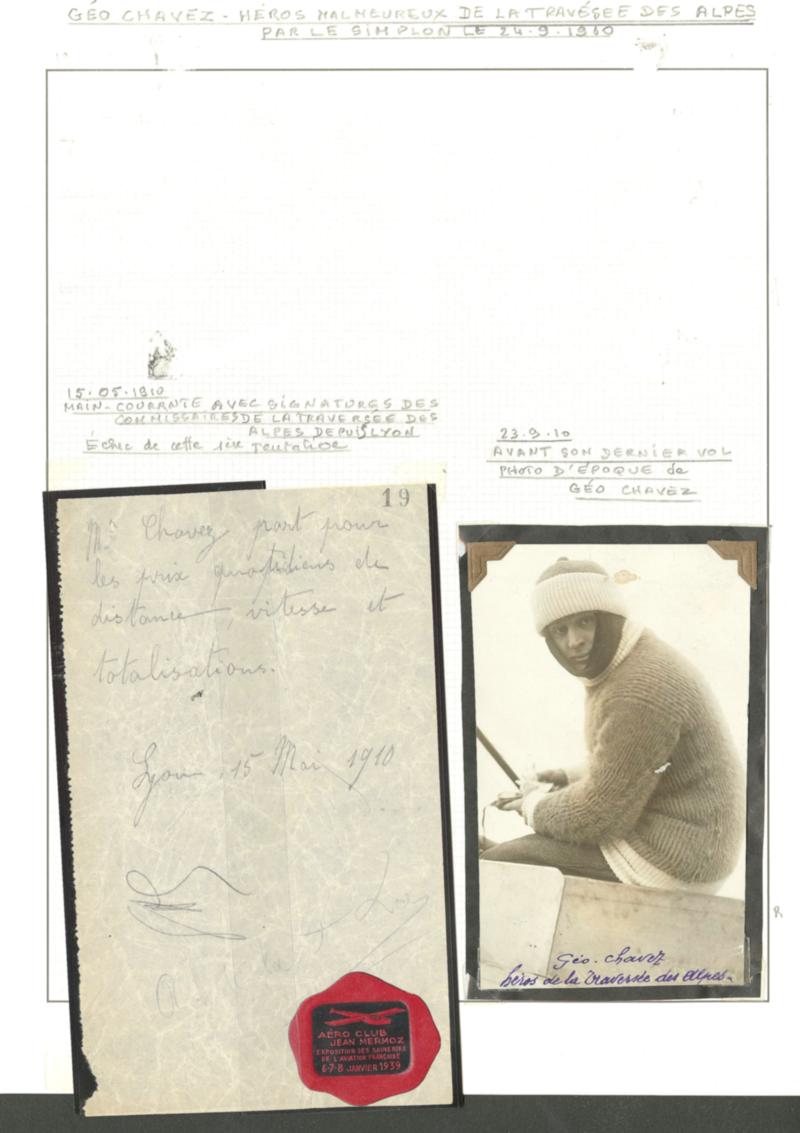 GÉO CHAVEZ - HÉROS MALHEUREUX DE LA TRAVÉSEE DES ALPES
PAR LE SIMPLON LE 24.9.1910
15.05.1910
MAIN-COURANTE AVEC SIGNATURES DES
COMMISSAIRES DE LA TRAVERSÉE DES
ALPES DEPUIS LYON
Échec de cette 1ère tentative
23.9.10
AVANT SON DERNIER VOL
PHOTO D'ÉPOQUE de
GÉO CHAVEZ
19
Mr Chavez part pour
les prix quotidiens de
distance, vitesse et
totalisations.
Lyon, 15 Mai 1910
AÉRO CLUB
JEAN MERMOZ
EXPOSITION DES SOUVENIRS
DE L'AVIATION FRANÇAISE
6-7-8 JANVIER 1939
Géo. Chavez
héros de la Traversée des Alpes.
R